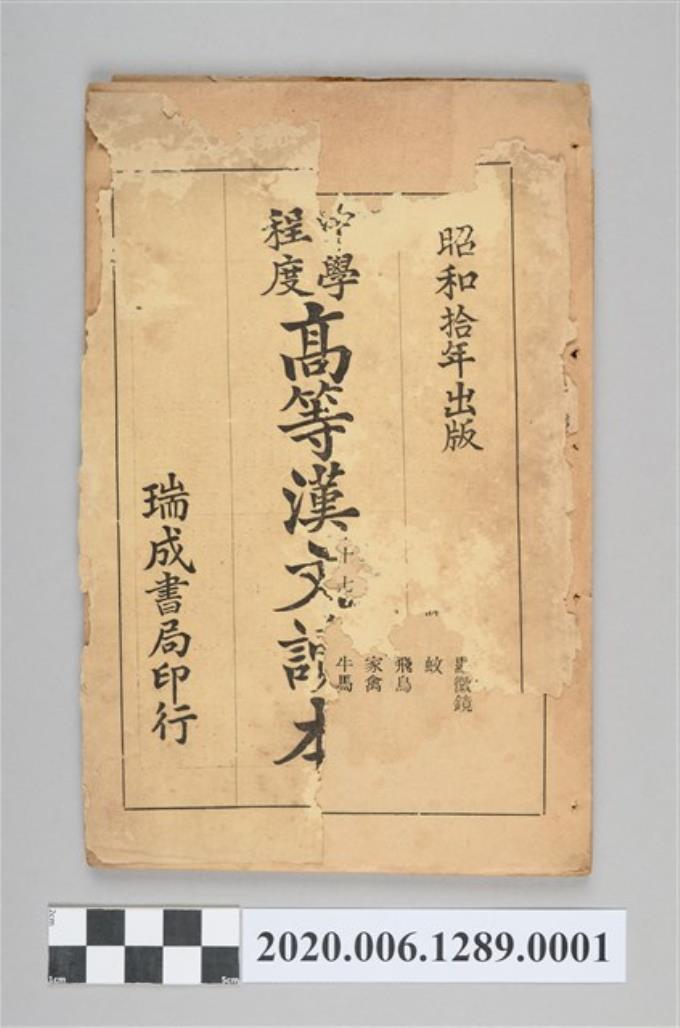 昭和拾年出版
中學
程度
高等漢文讀本
瑞成書局印行
微鏡
蚊
飛鳥
家禽
牛馬
十七
2020.006.1289.0001
5cm